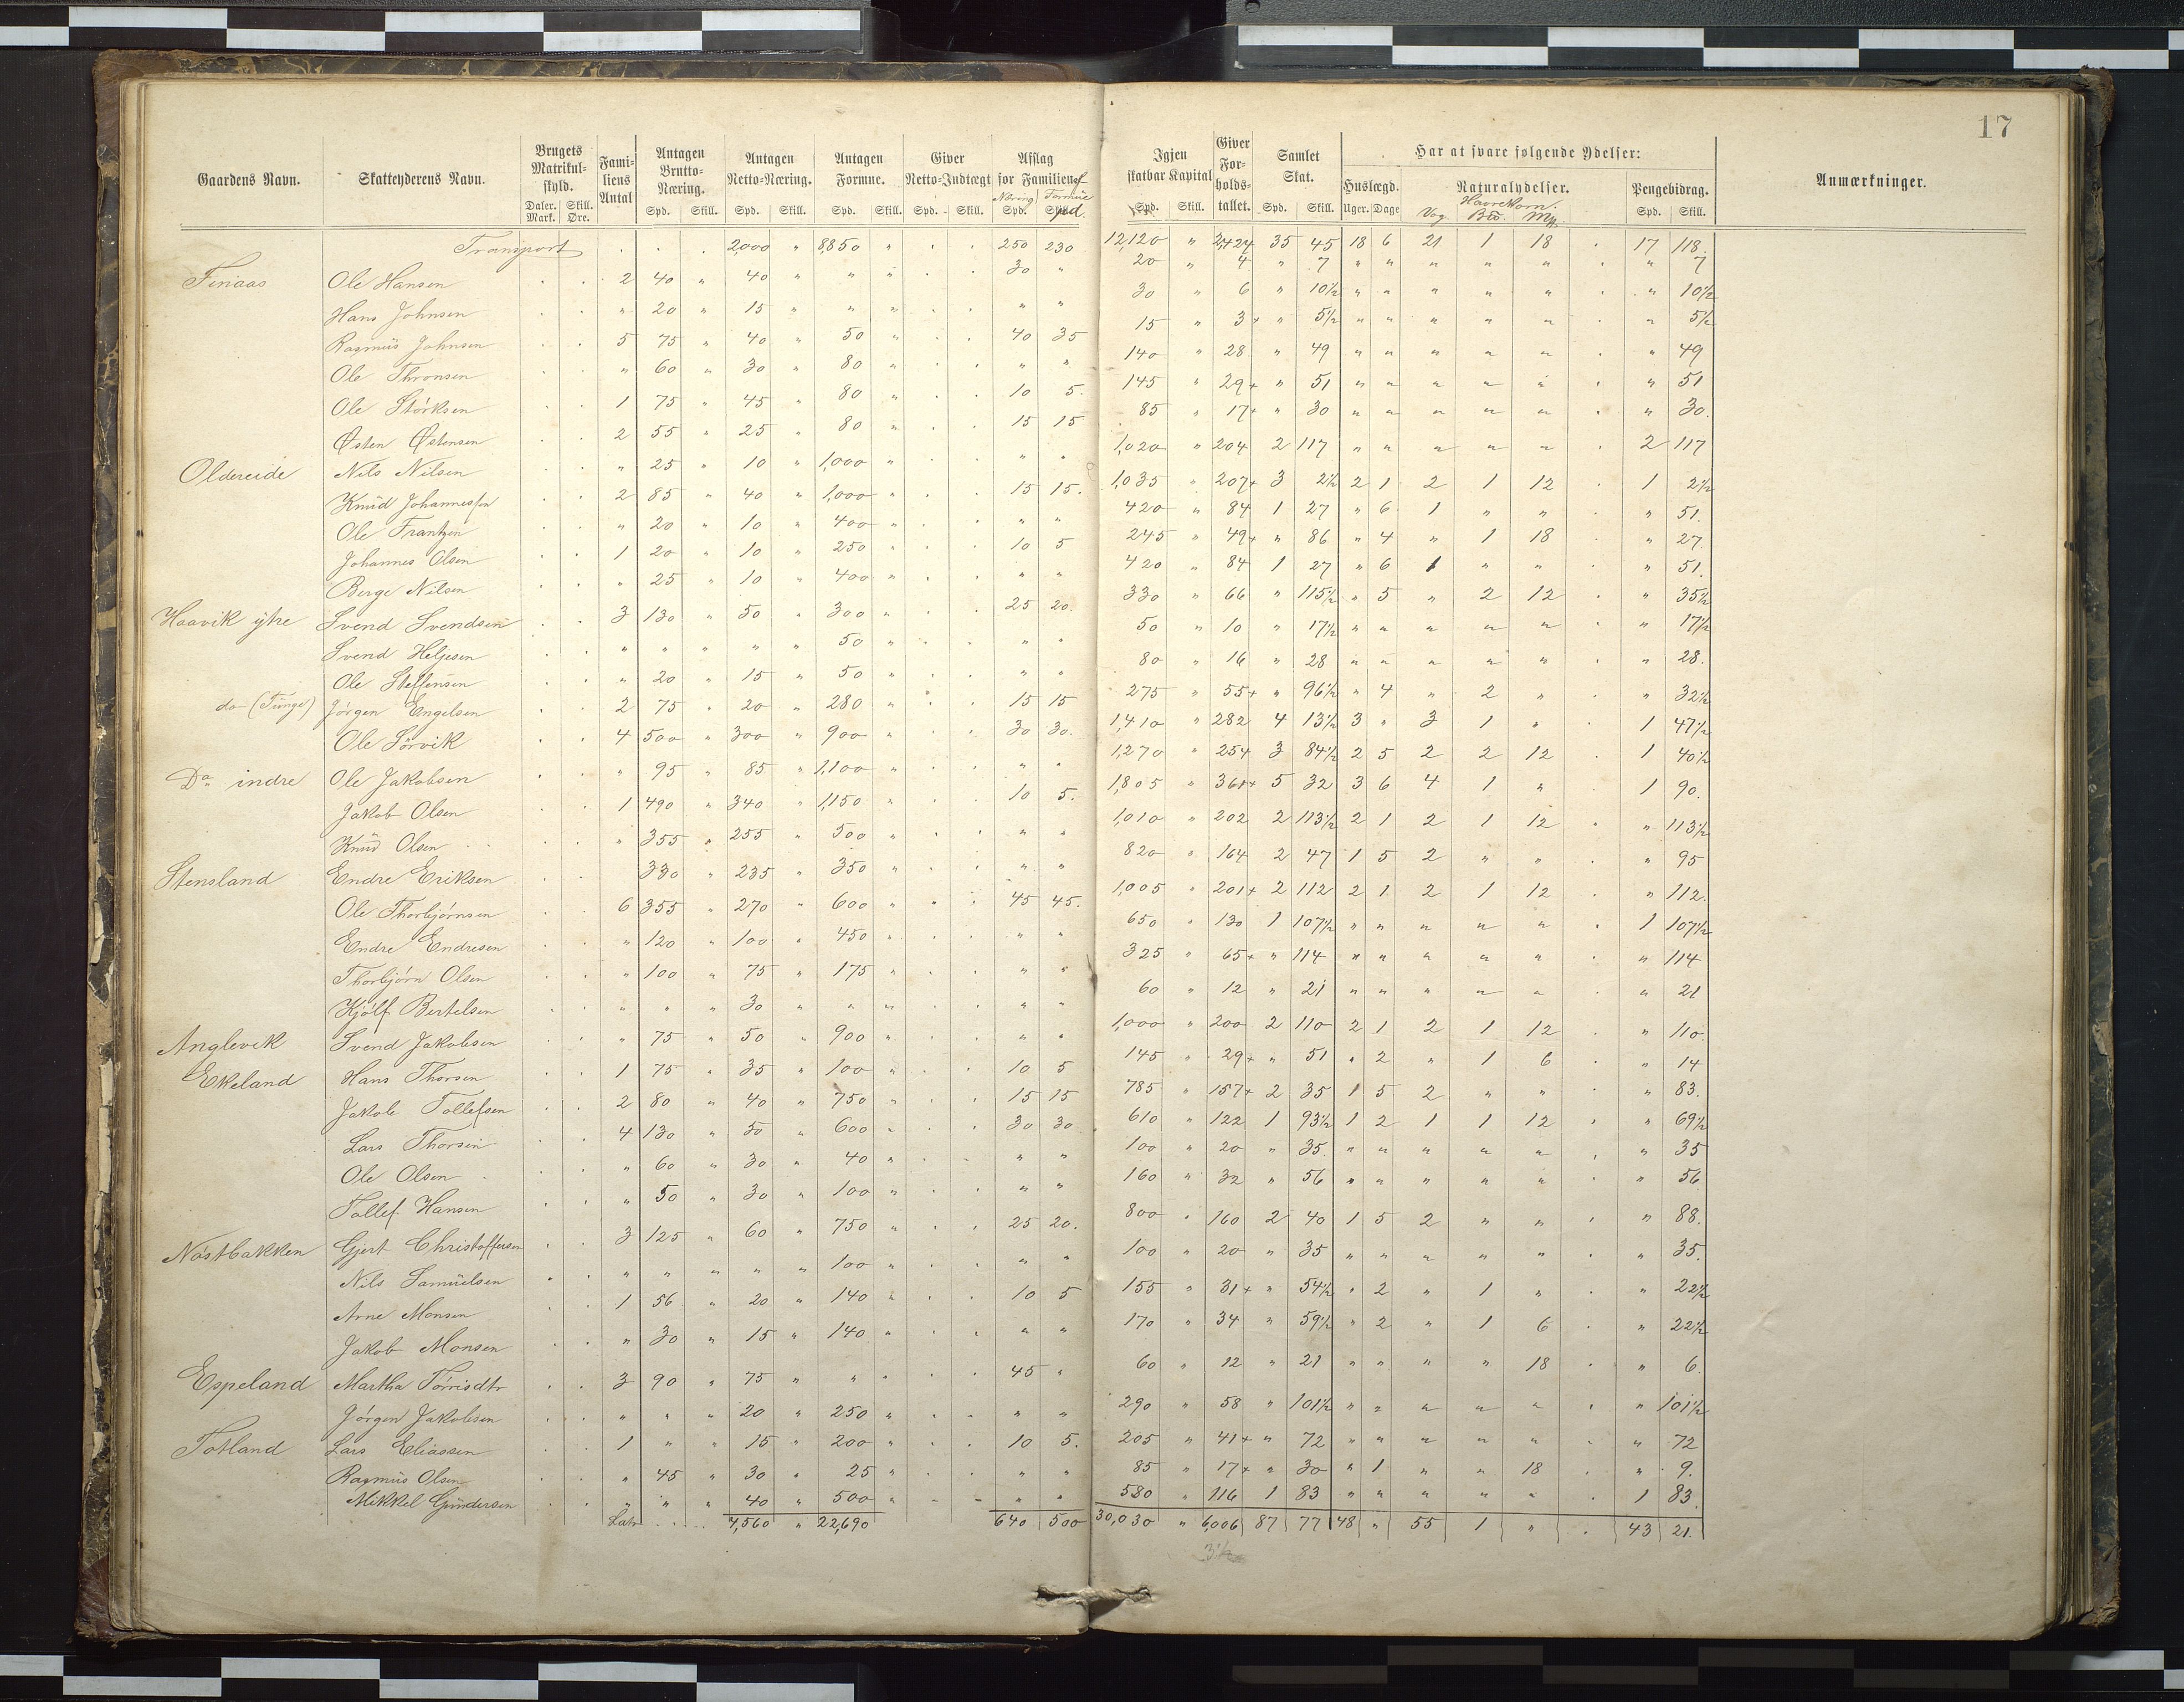 17
Gaardens Navn. Skatteyderens Navn. Brugets Matrikulskyld. Daler. Mark. Skill. Øre. Familiens Antal Antagen Brutto-Næring. Spd. Skill. Antagen Netto-Næring. Spd. Skill. Antagen Formue. Spd. Skill. Giver Netto-Indtægt Spd. Skill. Afslag for Familien af Næring Spd. Formue Spd. Igjen skatbar Kapital Spd. Skill. Giver Forholdstallet. Samlet Skat. Spd. Skill. Har at svare følgende Ydelser: Huslægd. Uger. Dage Naturalydelser. Havrekorn. Vog Pengebidrag. Spd. Skill. Anmærkninger.
Transport . . . 2,000 " 8,850 " . . 250 230 12,120 " 2,424 35 45 18 6 21 1 18 . 17 118.
Finaas Ole Hansen . . 2 40 " 40 " " . . 30 " 20 " 4 " 7 " " " " " . " 7
Hans Johnsen . . " 20 " 15 " " " . . " " 30 " 6 " 10½ " " " " " . " 10½
Rasmus Johnsen . . 5 75 " 40 " 50 " . . 40 35 15 " 3+ " 5½ " " " " " . " 5½
Ole Thronsen . . " 60 " 30 " 80 " . . " " 140 " 28 " 49 " " " " " . " 49
Ole Störksen . . 1 75 " 45 " 80 " . . 10 5. 145 " 29+ " 51 " " " " " . " 51
Østen Østensen . . 2 55 " 25 " 80 " . . 15 15 85 " 17+ " 30 " " " " " . " 30.
Oldereide Nils Nilsen . . " 25 " 10 " 1,000 " . . " " 1,020 " 204 2 117 " " " " " . 2 117
Knud Johannessen . . 2 85 " 40 " 1,000 " . . 15 15. 1,035 " 207+ 3 2½ 2 1 2 1 12 . 1 2½
Ole Frantzen . . " 20 " 10 " 400 " . . " " 420 " 84 1 27 " 6 1 " " . " 51.
Johannes Olsen . . 1 20 " 10 " 250 " . . 10 5 245 " 49+ " 86 " 4 " 1 18 . " 27.
Berge Nilsen . . " 25 " 10 " 400 " . . " " 420 " 84 1 27 " 6 1 " " . " 51.
Haavik ytre Svend Svendsen . . 3 130 " 50 " 300 " . . 25 20. 330 " 66 " 115½ " 5 " 2 12 . " 35½
Svend Heljesen . . " " " " " 50 " . . " " 50 " 10 " 17½ " " " " " . " 17½
Ole Steffensen . . " 20 " 15 " 50 " . . " " 80 " 16 " 28 " " " " " . " 28.
do (Tunge) Jörgen Engelsen . . 2 75 " 20 " 280 " . . 15 15 275 " 55+ " 96½ " 4 " 2 " . " 32½
Ole Sörvik . . 4 500 " 300 " 900 " . . 30 30. 1,410 " 282 4 13½ 3 " 3 1 " . 1 47½
Do indre Ole Jakobsen . . " 95 " 85 " 1,100 " . . " " 1,270 " 254 3 84½ 2 5 2 2 12 . 1 40½
Jakob Olsen . . 1 490 " 340 " 1,150 " . . 10 5. 1,805 " 361+ 5 32 3 6 4 1 " . 1 90.
Knud Olsen . . " 355 " 255 " 500 " . . " " 1,010 " 202 2 113½ 2 1 2 1 12 . " 113½
Stensland Endre Eriksen . . 330 " 235 " 350 " . . " " 820 " 164 2 47 1 5 2 " " . " 95
Ole Thorbjörnsen . . 6 355 " 270 " 600 " . . 45 45. 1,005 " 201+ 2 112 2 1 2 1 12 . " 112.
Endre Endresen . . " 120 " 100 " 450 " . . " " 650 " 130 1 107½ " " " " " . 1 107½
Thorbjörn Olsen . . " 100 " 75 " 175 " . . " " 325 " 65+ " 114 " " " " " . " 114
Kjölf Bertelsen . . " " " 30 " " " . . " " 60 " 12 " 21 " " " " " . " 21
Anglevik Svend Jakobsen . . " 75 " 50 " 900 " . . " " 1,000 " 200 2 110 2 1 2 1 12 . " 110.
Ekeland Hans Thorsen . . 1 75 " 35 " 100 " . . 10 5 145 " 29+ " 51 " 2 " 1 6 . " 14
Jakob Tollefsen . . 2 80 " 40 " 750 " . . 15 15 785 " 157+ 2 35 1 5 2 " " . " 83.
Lars Thorsen . . 4 130 " 50 " 600 " . . 30 30 610 " 122 1 93½ 1 2 1 1 12 . " 69½
Ole Olsen . . " 60 " 30 " 40 " . . " " 100 " 20 " 35. " " " " " . " 35
Tollef Hansen . . " 50 " 30 " 100 " . . " " 160 " 32 " 56 " " " " " . " 56
Nöstbakken Gjert Christoffersen . . 3 125 " 60 " 750 " . . 25 20. 800 " 160 2 40 1 5 2 " " . " 88.
Nils Samuelsen . . " " " " " 100 " . . " " 100 " 20 " 35 " " " " " . " 35.
Arne Monsen . . 1 56 " 20 " 140 " . . 10 5 155 " 31+ " 54½ " 2 " 1 " . " 22½
Jakob Monsen . . " 30 " 15 " 140 " . . " " 170 " 34 " 59½ " 2 " 1 6 . " 22½
Espeland Martha Törrisdtr . . 3 90 " 75 " " " . . 45 " 60 " 12 " 21 " " " " 18 . " 6.
Jörgen Jakobsen . . " " " 20 " 250 " . . " " 290 " 58 " 101½ " 2 " " " . " 101½
Totland Lars Eliassen . . 1 " " 15 " 200 " . . 10 5. 205 " 41+ " 72 " " " " " . " 72
Rasmus Olsen . . " 45 " 30 " 25 " . . " " 85 " 17+ " 30 " 1 " " 18 . " 9.
Mikkel Gundersen . . " " " 40 " 500 " . . " " 580 " 116 1 83 " " " " " . 1 83.
Lats . . . 4,560 " 22,690 640 500 30,030 " 6,006 87 77 48 " 55 1 " . 43 21.
3½